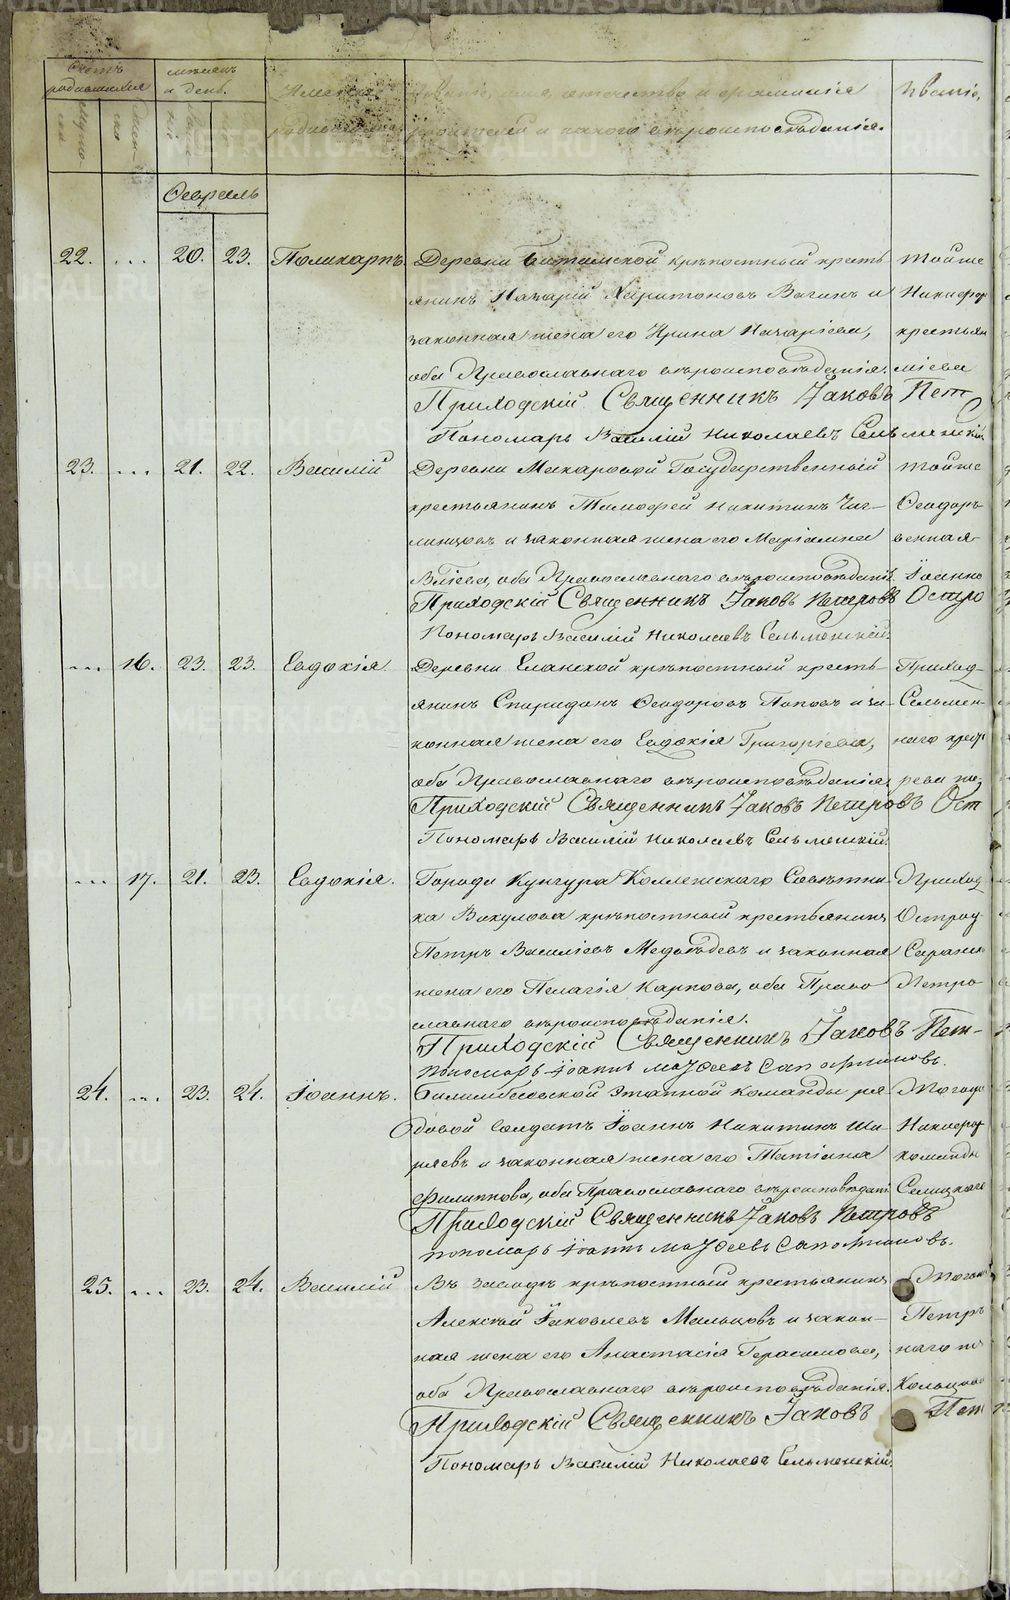 METRIKI.GASO-URAL.RU
Счетъ родившихся
мѣсяцъ и день.
Имена родившихся
Званіе, имя, отечество и фамилія
родителей и какого вѣроисповѣданія.
Званіе,
Февраль
22. ... 20. 23. Поликарпъ. Деревни Битимской крѣпостный кресть- тойже
янинъ Назарій Харитоновъ Вагинъ и Никифор
законная жена его Ирина Назаріева, крестьян
оба Православнаго вѣроисповѣданія.
Приходскій Священникъ Іаковъ Пет
Пономарь Василій Николаевъ Сельменскій
23. ... 21. 22. Василій Деревни Макаровой Государственный тойже
крестьянинъ Тимофей Никитинъ Чиг- Феодоръ
линцовъ и законная жена его Маріамна венная
оба Православнаго вѣроисповѣданія. Іоанно
Приходскій Священникъ Іаковъ Петровъ Остро
Пономарь Василій Николаевъ Сельменскій.
... 16. 23. 23. Евдокія Деревни Еланской крѣпостный кресть- Приход-
янинъ Спиридонъ Феодоровъ Поповъ и за- Сельмен-
конная жена его Евдокія Григоріева, наго
оба Православнаго вѣроисповѣданія.
Приходскій Священникъ Іаковъ Петровъ Ост
Пономарь Василій Николаевъ Сельменскій.
... 17. 21. 23. Евдокія. Города Кунгура Коллежскаго Совѣтни- Приход
ка Вакулова крѣпостный крестьянинъ Остроу
Петръ Василіевъ Медвѣдевъ и законная
жена его Пелагія Карпова, оба Право- Петро
славнаго вѣроисповѣданія.
Приходскій Священникъ Іаковъ Пет-
Пономарь Іоаннъ Матѳеевъ Сапожниковъ.
24. ... 23. 24. Іоаннъ. Билимбаевской Этапной команды ря-
довой солдатъ Іоаннъ Никитинъ Ши- Никифор
ряевъ и законная жена его Татіана команды
Филиппова, оба Православнаго вѣроисповѣданія
Приходскій Священникъ Іаковъ Петровъ
Пономарь Іоаннъ Матѳеевъ Сапожниковъ.
25. ... 23. 24. Василій Въ заводѣ крѣпостный крестьянинъ
Алексѣй Іаковлевъ Мальцовъ и закон- Петръ
ная жена его Анастасія Герасимова,
оба Православнаго вѣроисповѣданія.
Приходскій Священникъ Іаковъ Пет
Пономарь Василій Николаевъ Сельменскій.